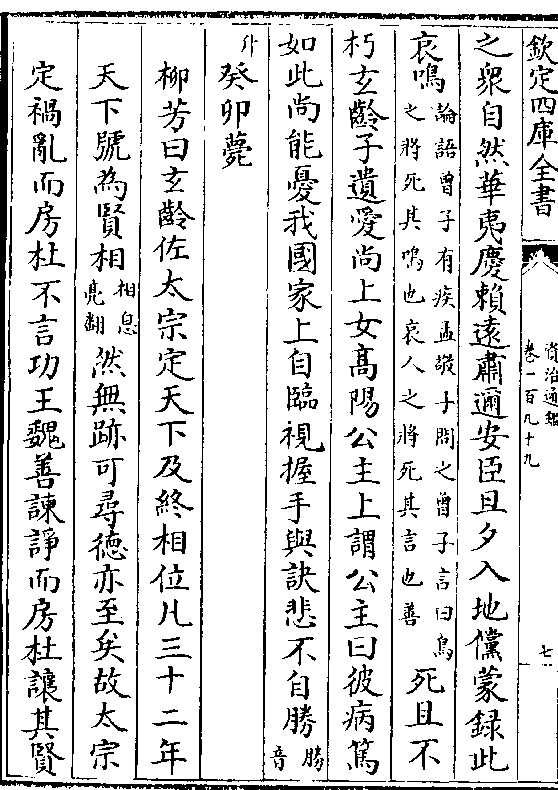 欽定四庫全書
資治通鑑
卷一百九十九
七
之衆自然華夷慶賴遠肅邇安臣旦夕入地儻蒙録此
哀鳴論語曾子有疾孟敬子問之曾子言曰鳥之將死其鳴也哀人之將死其言也善死且不
朽玄齡子遺愛尚上女髙陽公主上謂公主曰彼病篤
如此尚能憂我國家上自臨視握手與訣悲不自勝勝音
升癸卯薨
栁芳曰玄齡佐太宗定天下及終相位凡三十二年
天下號為賢相相息亮翻然無跡可尋德亦至矣故太宗
定禍亂而房杜不言功王魏善諫諍而房杜讓其賢